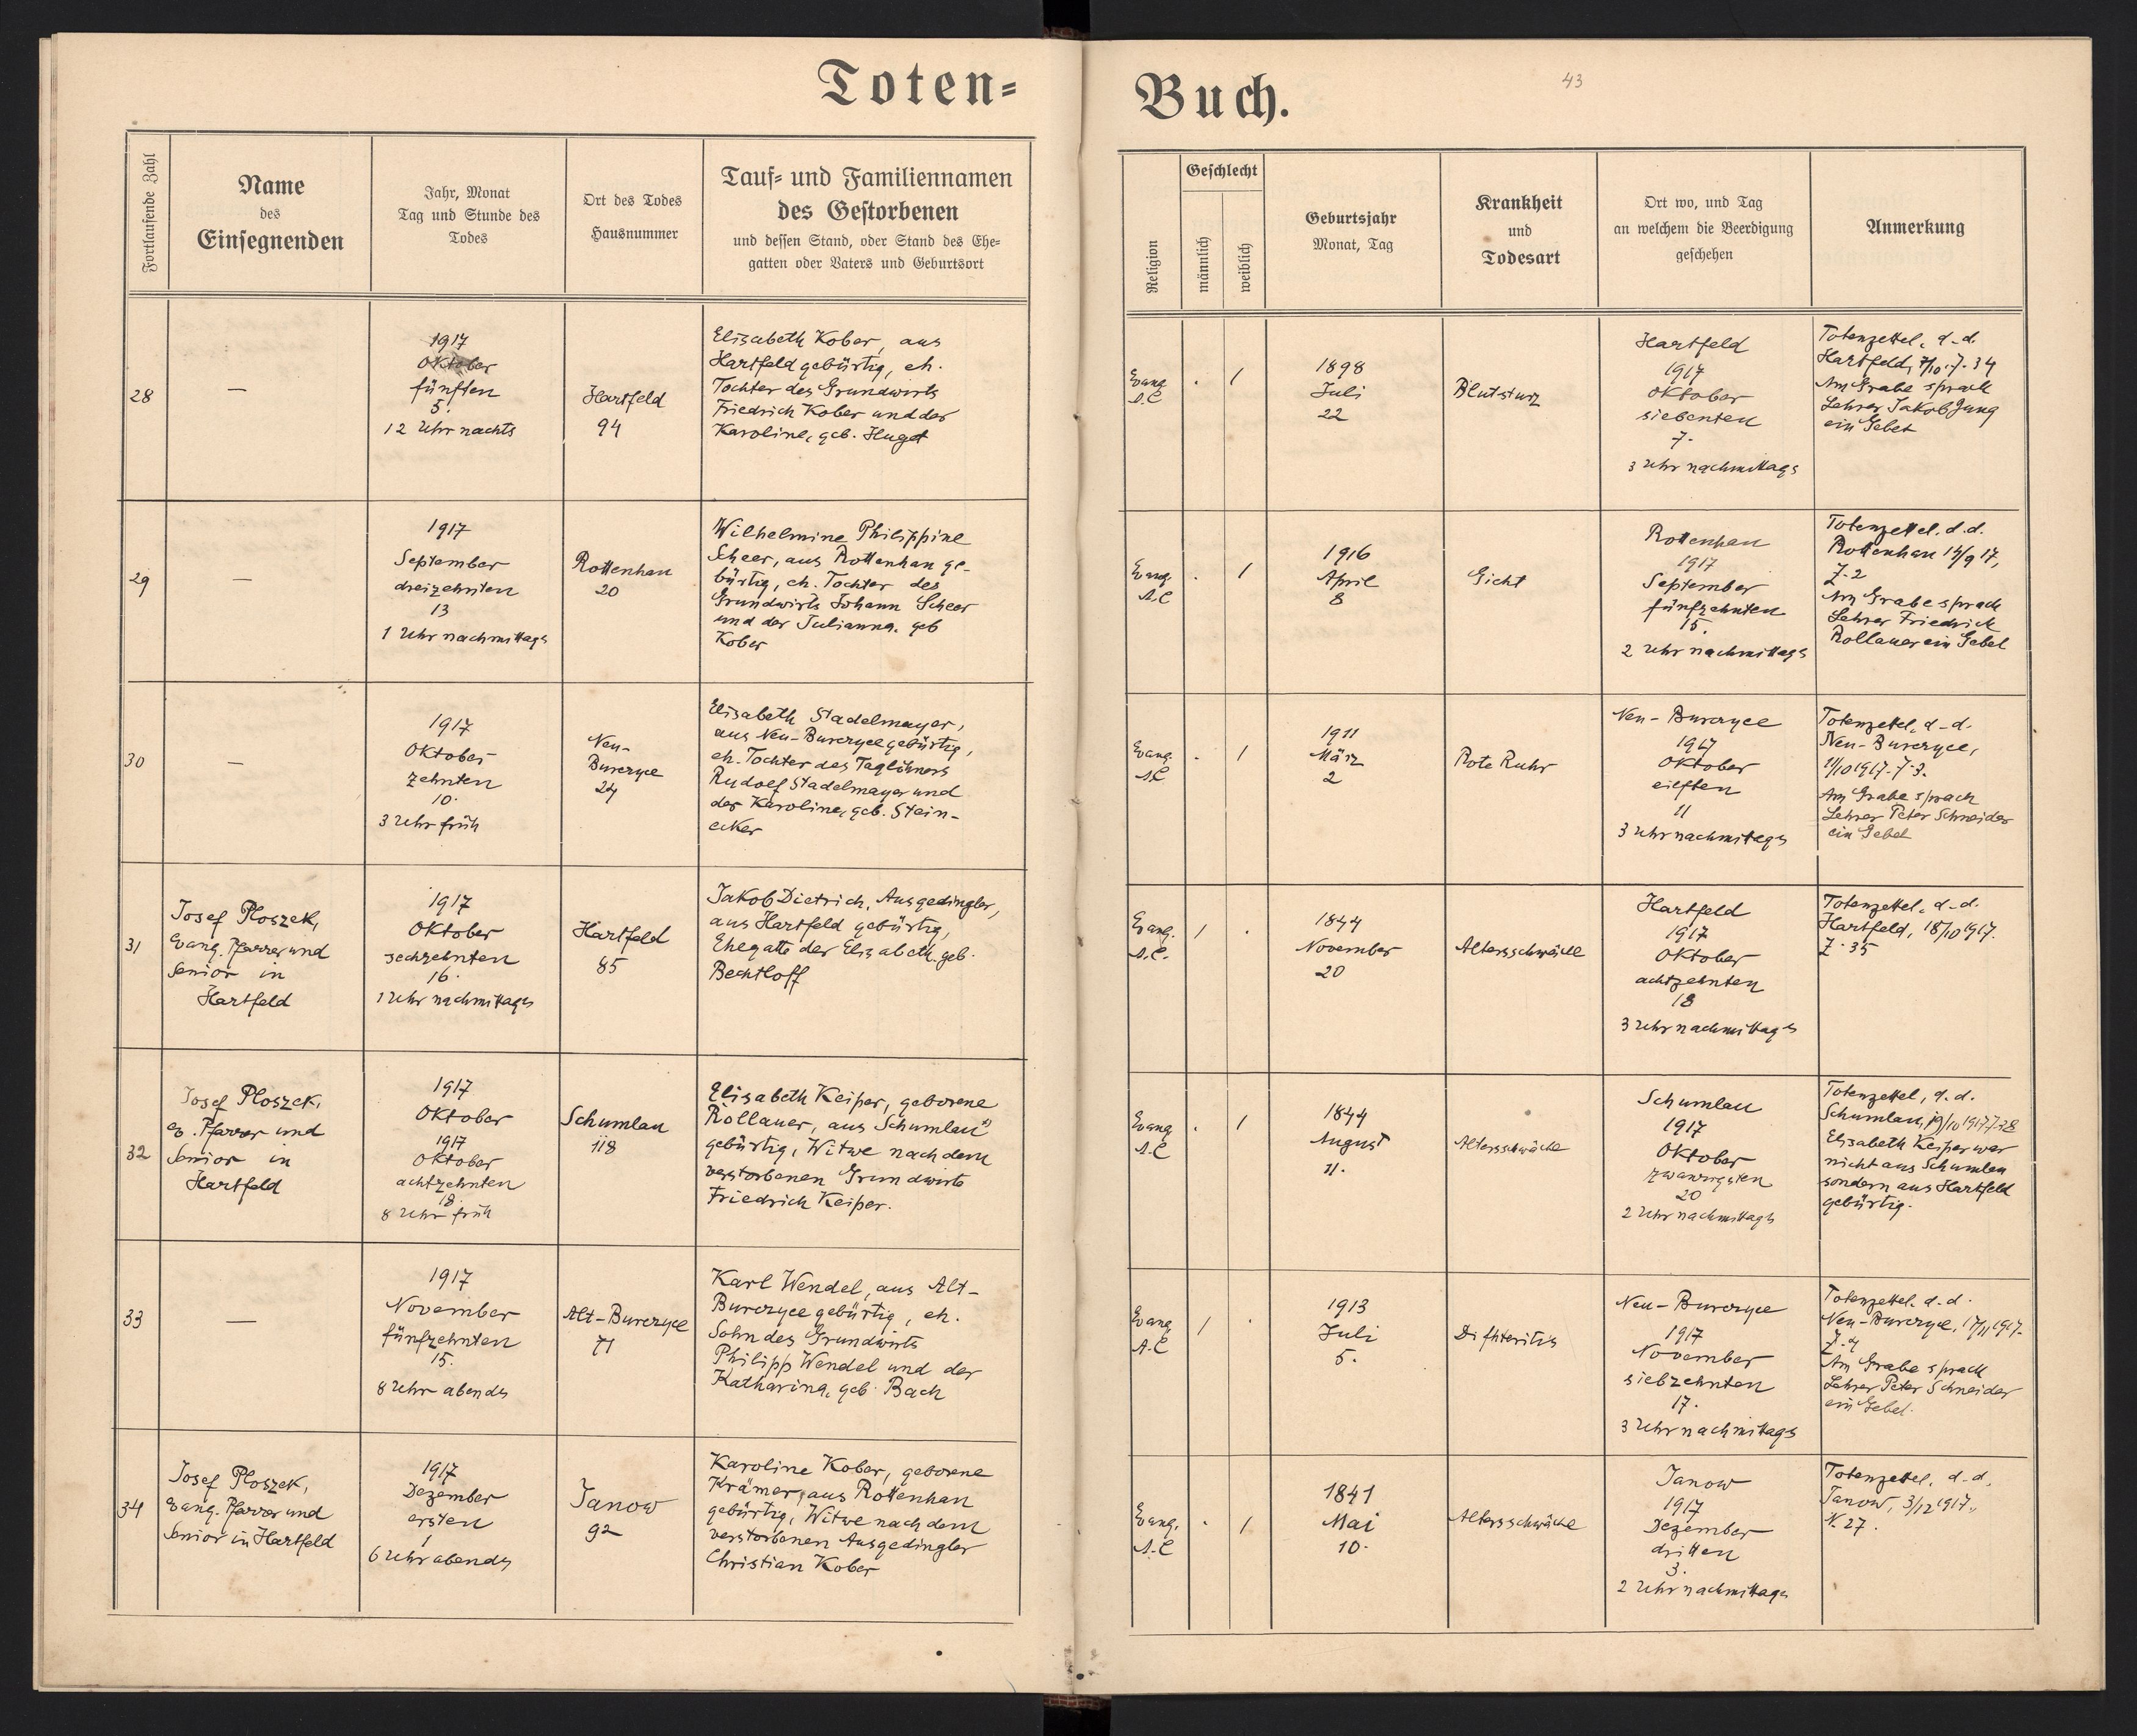 Toten=
Buch.
43
Fortlaufende Zahl
Name
des
Einsegnenden
Jahr, Monat
Tag und Stunde des
Todes
Ort des Todes
Hausnummer
Tauf= und Familiennamen
des Gestorbenen
und dessen Stand, oder Stand des Ehe=
gatten oder Vaters und Geburtsort
Religion
Geschlecht
männlich
weiblich
Geburtsjahr
Monat, Tag
Krankheit
und
Todesart
Ort wo, und Tag
an welchem die Beerdigung
geschehen
Anmerkung
28
—
1917
Oktober
fünften
5.
12 Uhr nachts
Hartfeld
94
Elisabeth Kober, aus
Hartfeld gebürtig, eh.
Tochter des Grundwirts
Friedrich Kober und der
Karoline, geb. Huget
Evang.
A.C
.
1
1898
Juli
22
Blutsturz
Hartfeld
1917
Oktober
siebenten
7.
3 Uhr nachmittags
Totenzettel, d.d.
Hartfeld, 7/10. Z. 34
Am Grabe sprach
Lehrer Jakob Jung
ein Gebet
29
—
1917
September
dreizehnten
13
1 Uhr nachmittags
Rottenhan
20
Wilhelmine Philippine
Scheer, aus Rottenhan ge-
bürtig, eh. Tochter des
Grundwirts Johann Scheer
und der Julianna, geb
Kober
Evang.
A.C
.
1
1916
April
8
Gicht
Rottenhan
1917
September
fünfzehnten
15.
2 Uhr nachmittags
Totenzettel. d.d.
Rottenhan 17,
Z. 2
Am Grabe sprach
Lehrer Friedrich
Rollauer ein Gebet
30
—
1917
Oktober
zehnten
10.
3 Uhr früh
Neu-
Burczyce
24
Elisabeth Stadelmayer,
aus Neu-Burczyce gebürtig,
eh. Tochter des Taglöhners
Rudolf Stadelmayer und
der Karoline, geb. Stein-
ecker
Evang.
A.C
.
1
1911
März
2
Rote Ruhr
Neu-Burczyce
1917
Oktober
eilften
11
3 Uhr nachmittags
Totenzettel, d.d.
Neu-Burczyce,
11/10 1917. Z. 3.
Am Grabe sprach
Lehrer Peter Schneider
ein Gebet
31
Josef Ploszek,
Evang. Pfarrer und
Senior in
Hartfeld
1917
Oktober
sechzehnten
16.
1 Uhr nachmittags
Hartfeld
85
Jakob Dietrich, Ausgedingler,
aus Hartfeld gebürtig,
Ehegatte der Elisabeth, geb.
Bechtloff
Evang.
A.C.
1
.
1844
November
20
Altersschwäche
Hartfeld
1917
Oktober
achtzehnten
18
3 Uhr nachmittags
Totenzettel, d.d.
Hartfeld, 18/10 1917.
Z. 35
32
Josef Ploszek,
ev. Pfarrer und
Senior in
Hartfeld
1917
Oktober
1917
Oktober
achtzehnten
18.
8 Uhr früh
Schumlau
118
Elisabeth Keiper, geborene
Rollauer, aus Schumlau
gebürtig, Witwe nach dem
verstorbenen Grundwirte
Friedrich Keiper.
Evang
A.C
.
1
1844
August
11.
Altersschwäche
Schumlau
1917
Oktober
zwanzigsten
20
2 Uhr nachmittags
Totenzettel, d.d.
Schumlau, 19/10 1917 Z. 28
Elisabeth Keiper war
nicht aus Schumlau
sondern aus Hartfeld
gebürtig.
33
—
1917
November
fünfzehnten
15.
8 Uhr abends
Alt-Burczyce
71
Karl Wendel, aus Alt-
Burczyce gebürtig, eh.
Sohn des Grundwirts
Philipp Wendel und der
Katharina, geb. Bach
Evang
A.C
1
.
1913
Juli
5.
Difhteritis
Neu-Burczyce
1917
November
siebzehnten
17.
3 Uhr nachmittags
Totenzettel. d.d.
Neu-Burczyce, 17/11 1917.
Z. 4
Am Grabe sprach
Lehrer Peter Schneider
ein Gebet.
34
Josef Ploszek,
Evang. Pfarrer und
Senior in Hartfeld
1917
Dezember
ersten
1
6 Uhr abends
Janow
92
Karoline Kober, geborene
Krämer, aus Rottenhan
gebürtig, Witwe nach dem
verstorbenen Ausgedingler
Christian Kober
Evang.
A.C
.
1
1841
Mai
10.
Altersschwäche
Janow
1917
Dezember
dritten
3.
2 Uhr nachmittags
Totenzettel, d.d.
Janow, 3/12 1917.,
N. 27.